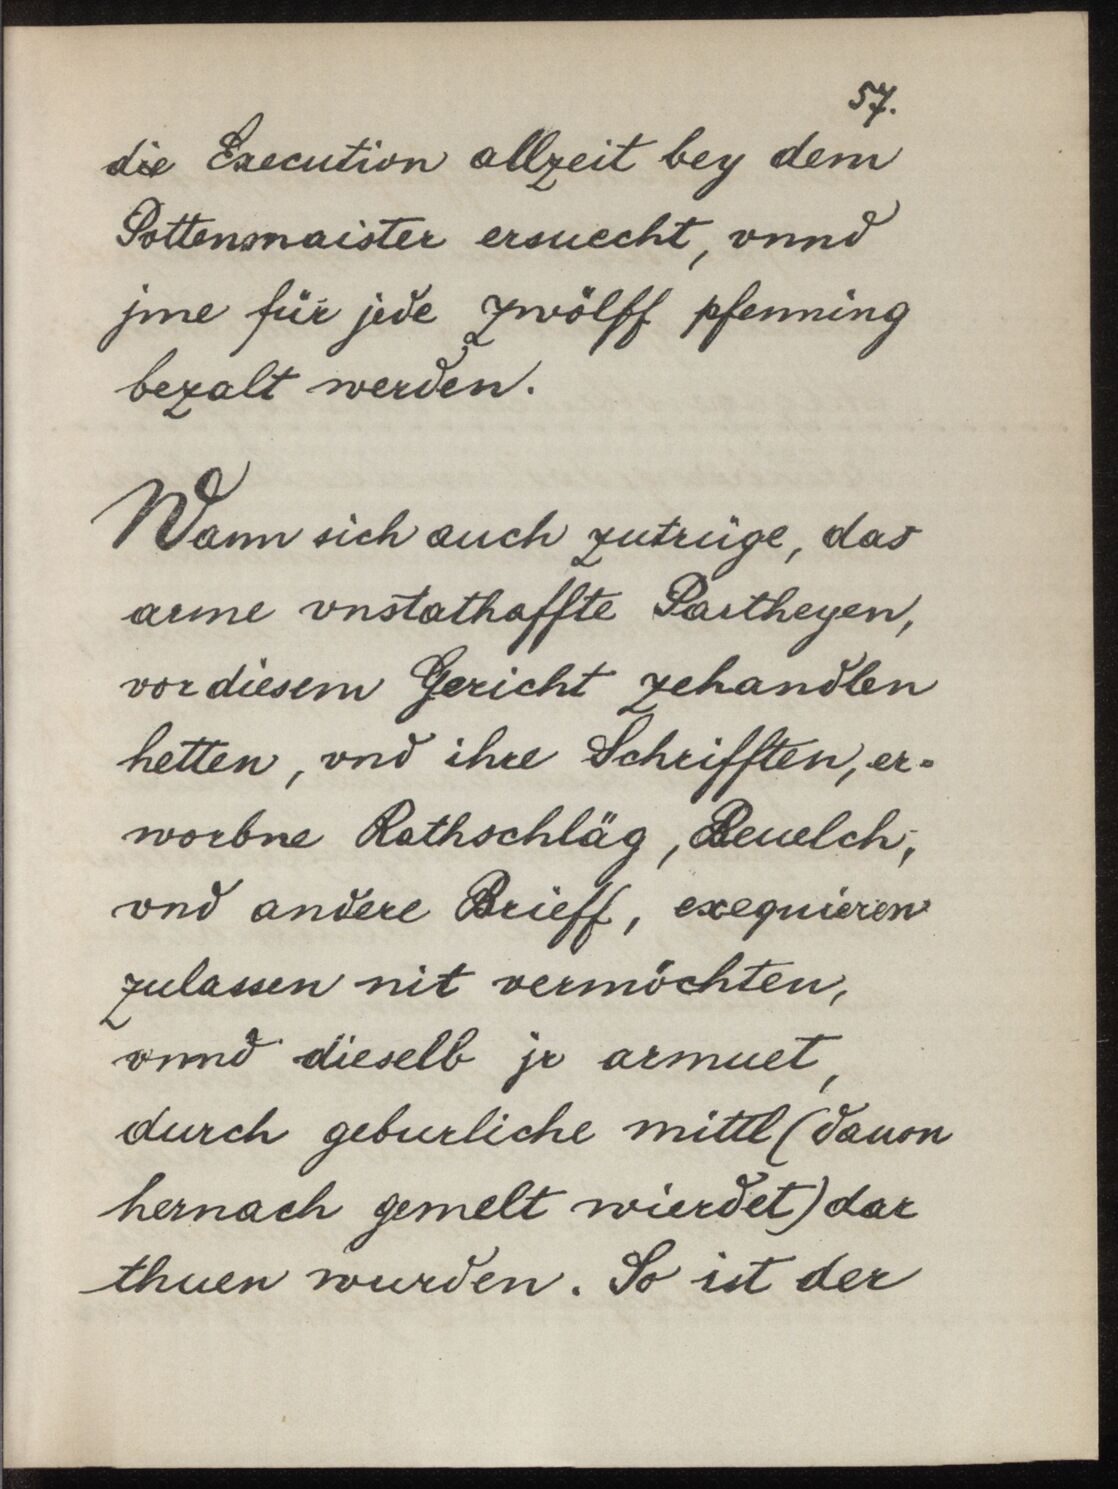 57.
die Execution allzeit bey dem
Pottenmaister ersuecht, vnnd
jme für jede zwölff pfenning
bezalt werden.
Wann sich auch zutrüge, das
arme vnstathaffte Partheyen,
vor diesem Gericht zehandlen
hetten, vnd ihre Schrifften, er-
worbne Rathschläg, Beuelch,
vnd andere Brieff, exequieren
zulassen nit vermöchten,
vnnd dieselb jr armuet,
durch geburliche mittl (dauon
hernach gemelt wierdet) dar
thuen wurden. So ist der